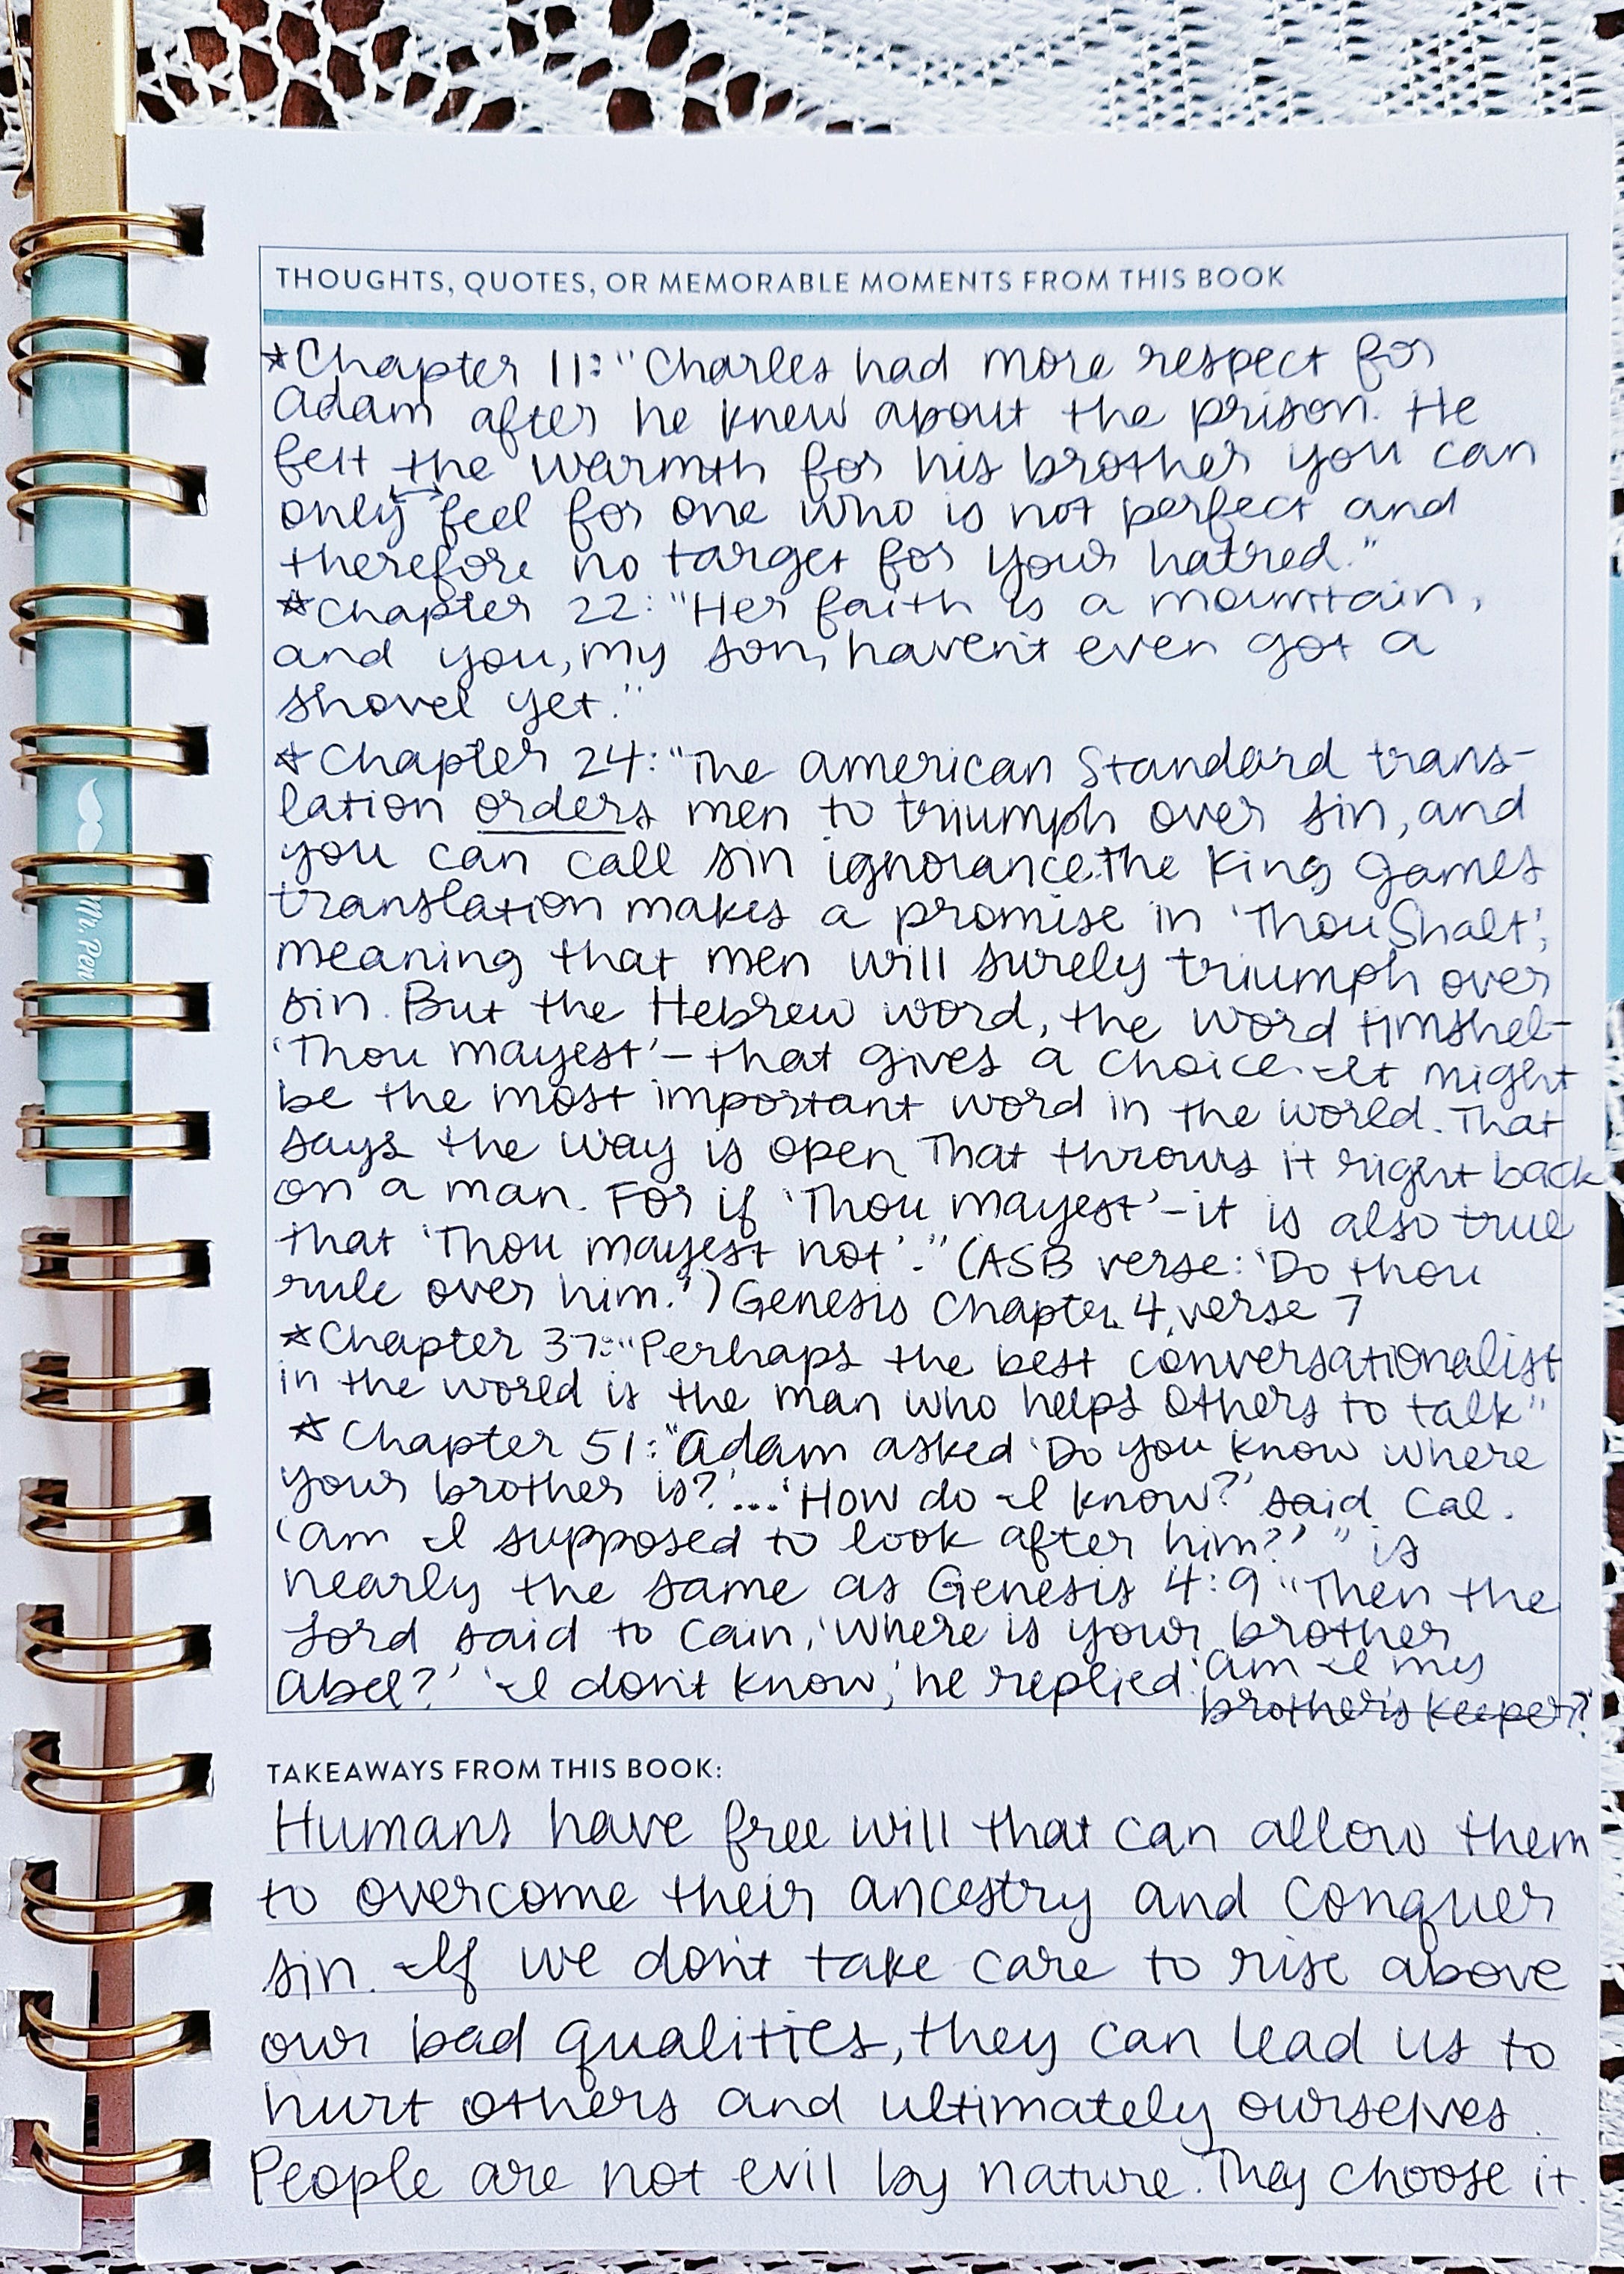 THOUGHTS, QUOTES, OR MEMORABLE MOMENTS FROM THIS BOOK
*Chapter 11: "Charles had more respect for
Adam after he knew about the prison. He
felt the warmth for his brother you can
only feel for one who is not perfect and
therefore no target for your hatred."
*Chapter 22: "Her faith is a mountain,
and you, my son, haven't even got a
shovel yet."
*Chapter 24: "The American Standard trans-
lation orders men to triumph over sin, and
you can call sin ignorance. The King James
translation makes a promise in 'Thou Shalt',
meaning that men will surely triumph over
sin. But the Hebrew word, the word timshel-
'Thou mayest'-that gives a choice. It might
be the most important word in the world. That
says the way is open. That throws it right back
on a man. For if 'Thou mayest'-it is also true
that 'Thou mayest not'." (ASB verse: 'Do thou
rule over him.') Genesis Chapter 4, verse 7
*Chapter 37: "Perhaps the best conversationalist
in the world is the man who helps others to talk"
*Chapter 51: "Adam asked 'Do you know where
your brother is?'...'How do I know?' said Cal.
'Am I supposed to look after him?'" is
nearly the same as Genesis 4:9 "Then the
Lord said to Cain, 'Where is your brother
Abel?' 'I don't know,' he replied. 'Am I my
brother's keeper?'
TAKEAWAYS FROM THIS BOOK:
Humans have free will that can allow them
to overcome their ancestry and conquer
sin. If we don't take care to rise above
our bad qualities, they can lead us to
hurt others and ultimately ourselves.
People are not evil by nature. They choose it.
Mr. Pen